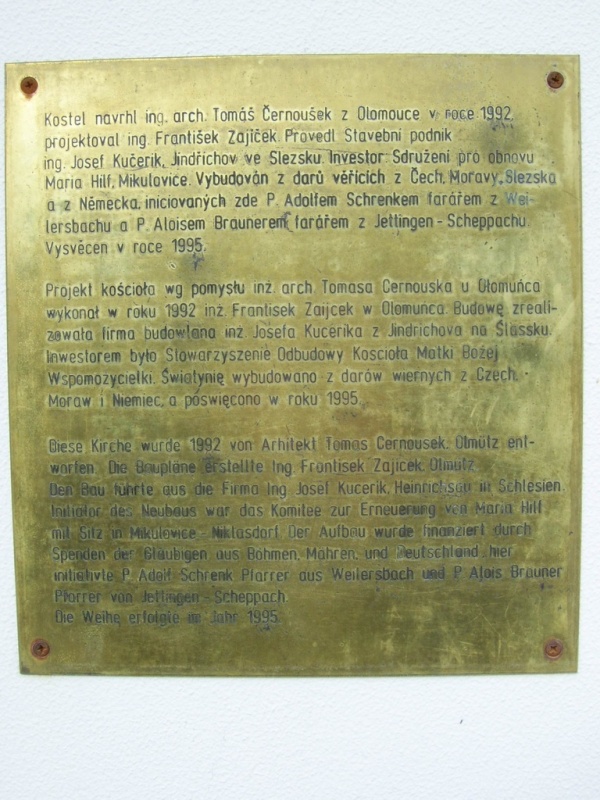 Kostel navrhl ing. arch. Tomáš Černoušek z Olomouce v roce 1992,
projektoval ing. František Zajíček. Provedl Stavební podnik
ing. Josef Kučerik, Jindřichov ve Slezsku. Investor: Sdružení pro obnovu
Maria Hilf, Mikulovice. Vybudován z darů věřících z Čech, Moravy, Slezska
a z Německa, iniciovaných zde P. Adolfem Schrenkem farářem z Wei-
lersbachu a P. Aloisem Braunerem farářem z Jettingen-Scheppachu.
Vysvěcen v roce 1995.
Projekt kościoła wg pomysłu inż. arch Tomasa Cernouska u Ołomuńca
wykonał w roku 1992 inż. Frantisek Zaijcek w Olomuńca. Budowę zreali-
zowała firma budowlana inż. Josefa Kucerika z Jindrichova na Ślassku.
Inwestorem było Stowarzyszenie Odbudowy Koscioła Matki Bożej
Wspomozycielki. Świątynię wybudowano z darów wiernych z Czech,
Moraw i Niemiec, a poświęcono w roku 1995.
Diese Kirche wurde 1992 von Arhitekt Tomas Cernousek, Olmütz ent-
worfen. Die Baupläne erstellte Ing. Frontisek Zajicek, Olmütz
Den Bau führte aus die Firma Ing Josef Kucerik, Heinrichsau in Schlesien.
Initiator des Neubaus war das Komitee zur Erneuerung von Maria Hilf
mit Sitz in Mikulovice - Niklasdorf Der Aufbau wurde finanziert durch
Spenden der Gläubigen aus Böhmen, Mähren, und Deutschland hier
initiativte P. Adolf Schrenk Pfarrer aus Weilersbach und P. Alois Brauner
Pfarrer von Jettingen-Scheppach.
Die Weihe erfolgte im Jahr 1995